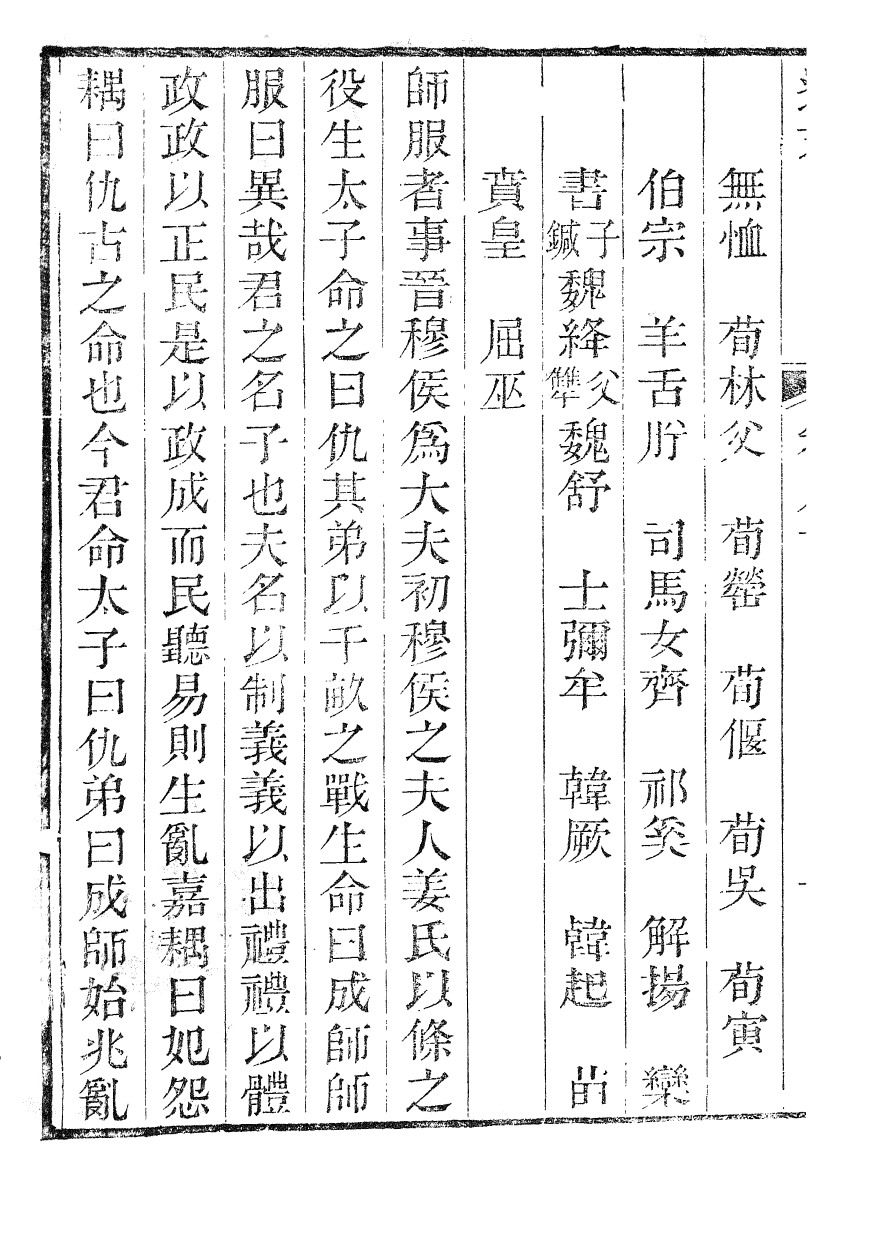 無恤　荀林父　荀罃　荀偃　荀吳　荀寅
伯宗　羊舌肸　司馬女齊　祁奚　解揚　欒
書子鍼魏絳父犨魏舒　士彌牟　韓厥　韓起　苗
賁皇　屈巫
師服者事晉穆侯爲大夫初穆侯之夫人姜氏以條之
役生太子命之曰仇其弟以千畝之戰生命曰成師師
服曰異哉君之名子也夫名以制義義以出禮禮以體
政政以正民是以政成而民聽易則生亂嘉耦曰妃怨
耦曰仇古之命也今君命太子曰仇弟曰成師始兆亂